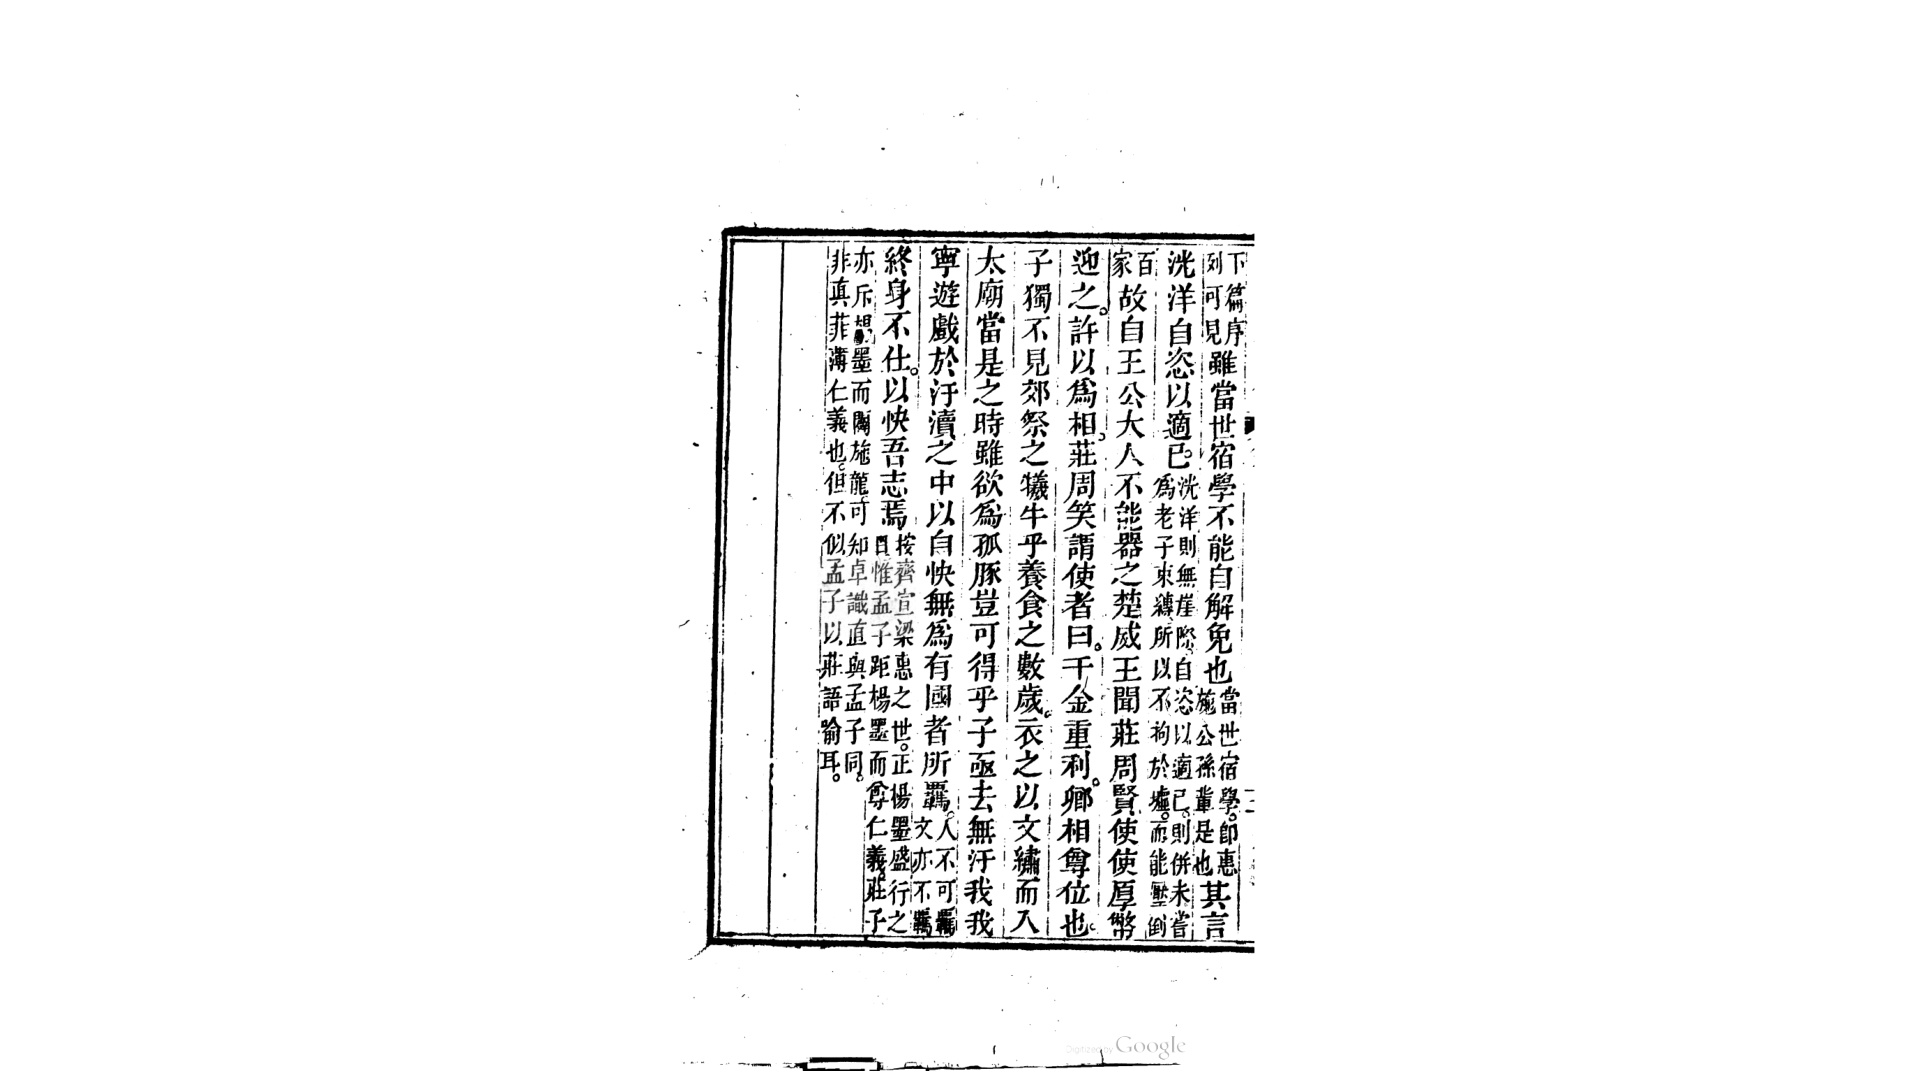 下篇序列可見雖當世宿學不能自解免也當世宿學。卽惠施公孫輩是也其言
洸洋自恣以適已。洸洋則無崖際。自恣以適已。則併未嘗爲老子束縛所以不拘於墟。而能壓倒
百家故自王公大人不能器之楚威王聞莊周賢使使厚幣
迎之。許以爲相。莊周笑謂使者曰。千金重利。卿相尊位也。
子獨不見郊祭之犧牛乎養食之數歲。衣之以文繡而入
太廟當是之時雖欲爲孤豚豈可得乎子亟去無汙我我
寧遊戲於汙瀆之中以自快無爲有國者所羈。人不可羈文亦不羈
終身不仕。以快吾志焉按齊宣梁惠之世。正楊墨盛行之日惟孟子距楊墨而尊仁義。莊子
亦斥楊墨而闢施龍。可知卓識直與孟子同。
非真菲薄仁義也。但不似孟子以莊語喻耳。
Digitized by Google